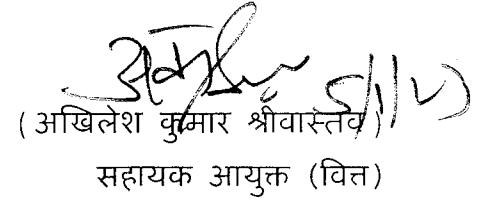 5/1/23
(अखिलेश कुमार श्रीवास्तव)
सहायक आयुक्त (वित्त)